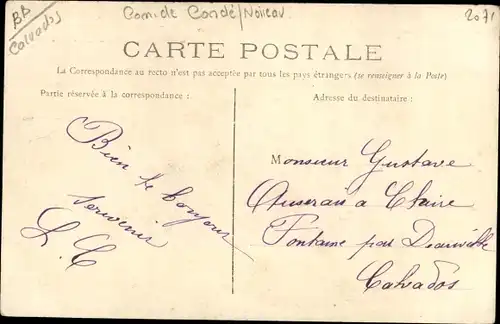 BB
Calvados
2071
CARTE POSTALE
La Correspondance au recto n'est pas acceptée par tous les pays étrangers (se renseigner à la Poste)
Partie réservée à la correspondance :
Adresse du destinataire :
Bien le bonjour
Souvenir
L. C
Monsieur Gustave
Auserau à Claire
Fontaine par Deauville
Calvados